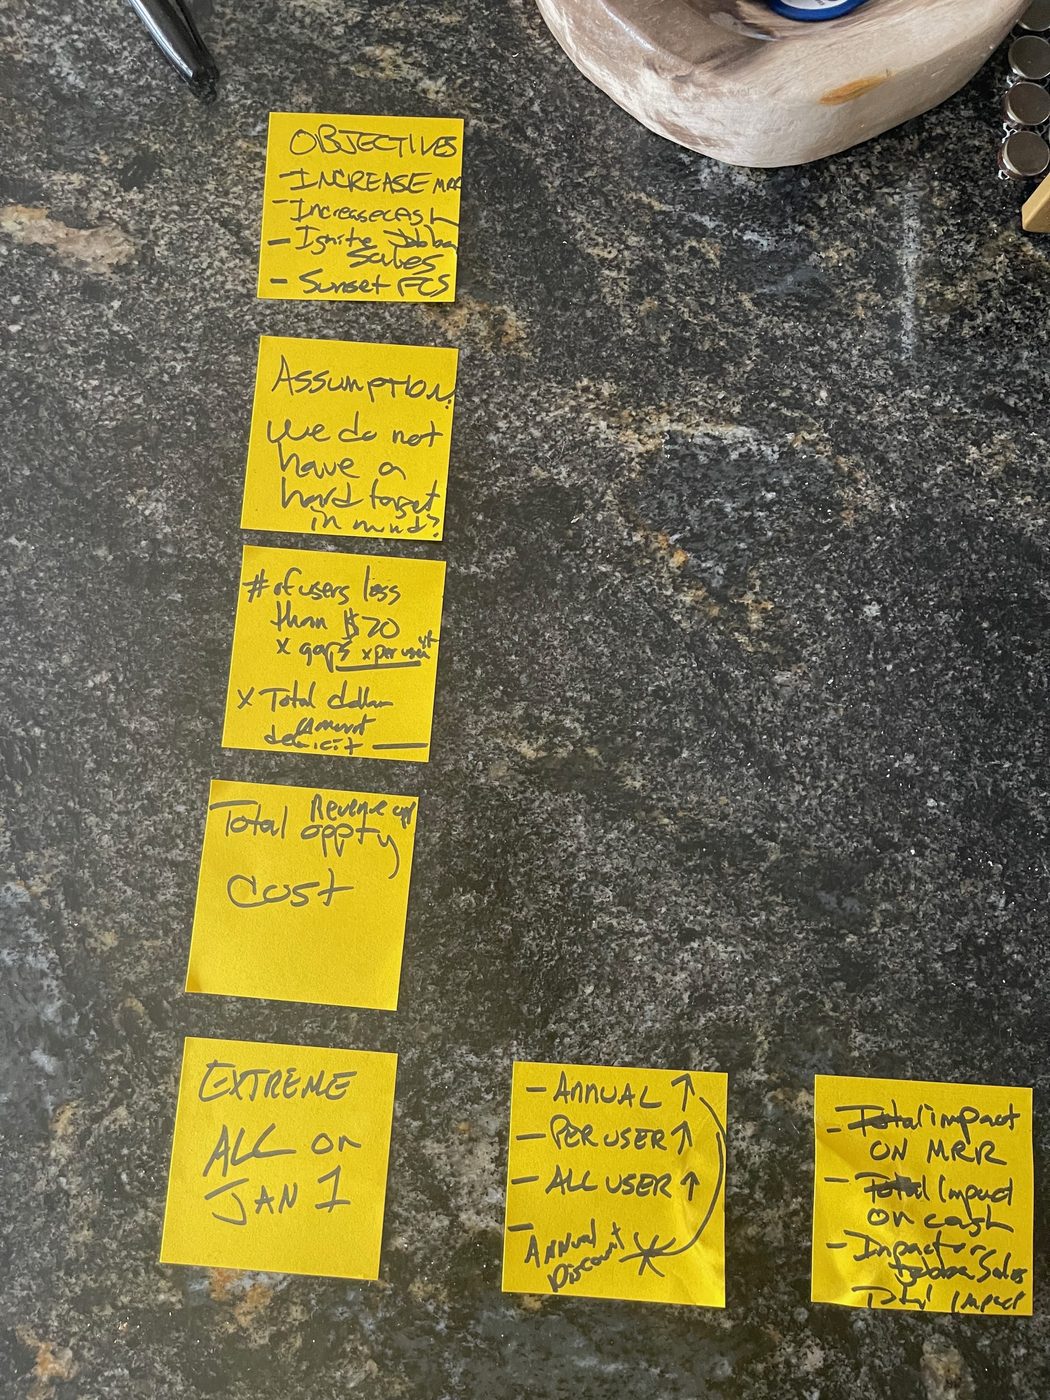 OBJECTIVES
- INCREASE MRR
- Increase cash
- Ignite
Sales
- Sunset FCS
Assumption:
We do not
have a
hard target
in mind?
# of users less
than $70
x gaps x per user
x Total dollar
amount
deficit —
Total Revenue
oppty
cost
EXTREME
ALL on
JAN 1
- ANNUAL ↑
- PER USER ↑
- ALL USER ↑
- ANNUAL
Discount
- Total impact
ON MRR
- Total Impact
on cash
- Impact on
Sales
Total Impact